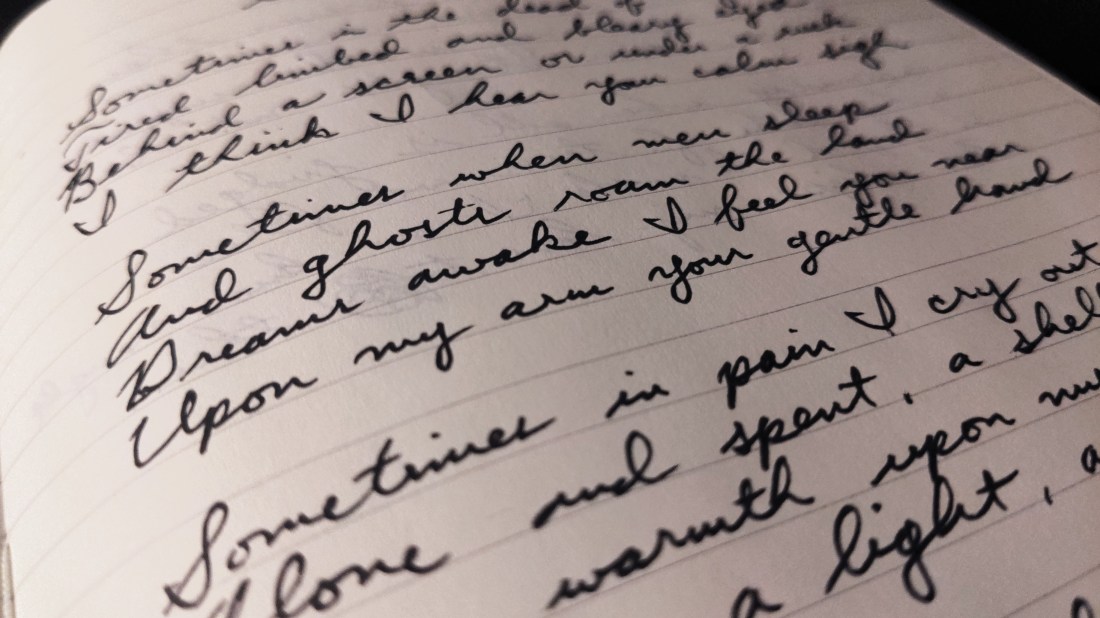 Sometimes in the dead of
Tired limbed and bleary eyed
Behind a screen or under a
I think I hear you calm sigh
Sometimes when men sleep
And ghosts roam the land
Dreams awake I feel you near
Upon my arm your gentle hand
Sometimes in pain I cry out
Alone and spent, a
warmth upon
a light,